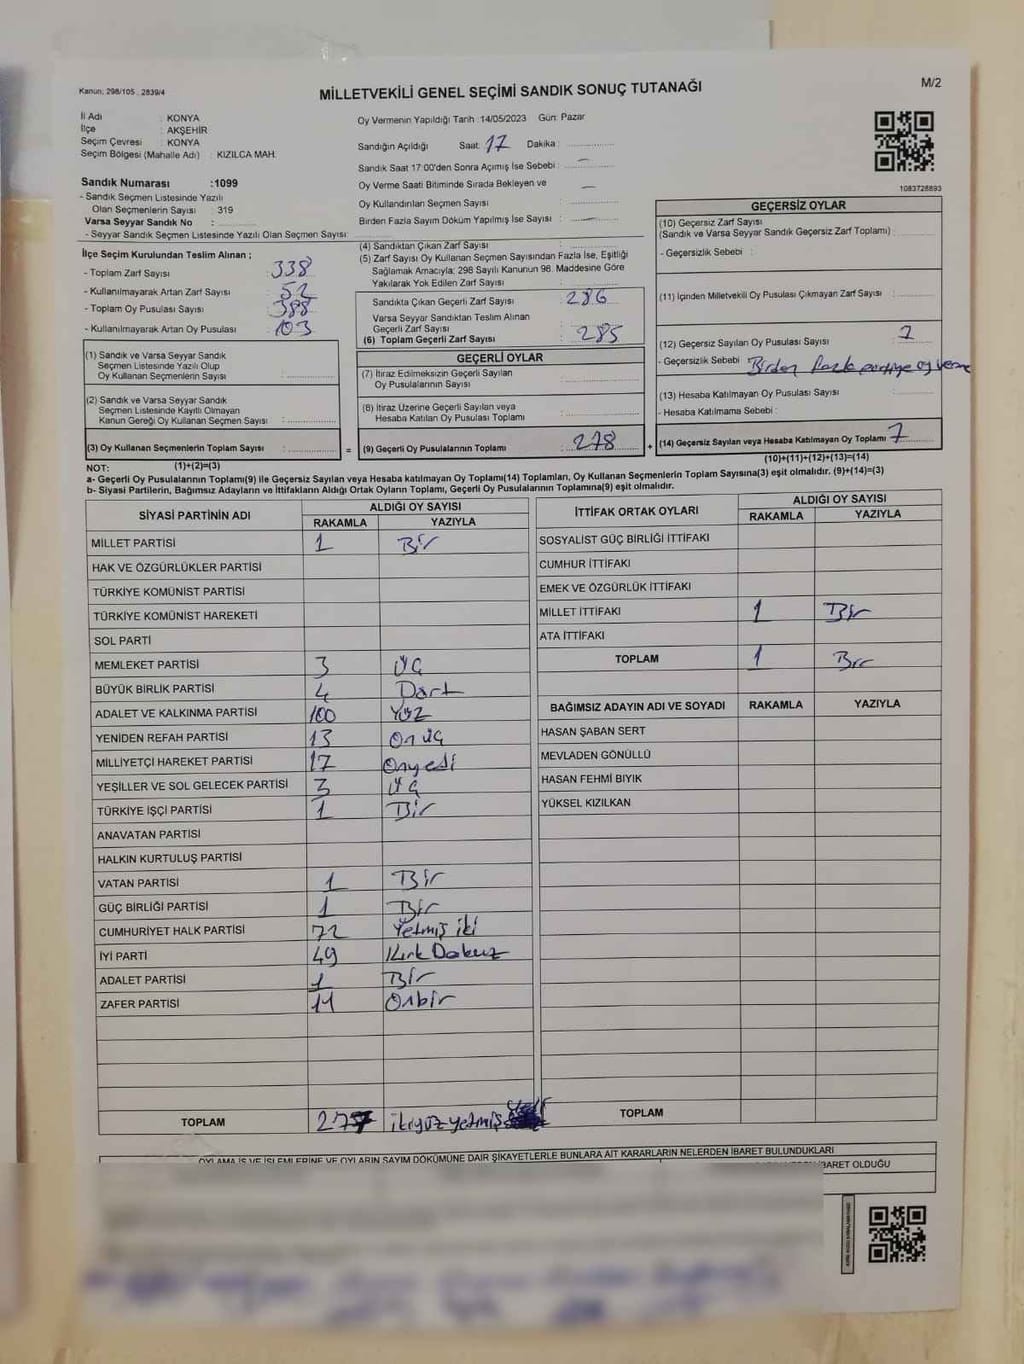 Kanun: 298/105 , 2839/4
MİLLETVEKİLİ GENEL SEÇİMİ SANDIK SONUÇ TUTANAĞI
M/2
İl Adı : KONYA
İlçe : AKŞEHİR
Seçim Çevresi : KONYA
Seçim Bölgesi (Mahalle Adı) : KIZILCA MAH.
Sandık Numarası :1099
- Sandık Seçmen Listesinde Yazılı
Olan Seçmenlerin Sayısı : 319
Varsa Seyyar Sandık No :
- Seyyar Sandık Seçmen Listesinde Yazılı Olan Seçmen Sayısı:
Oy Vermenin Yapıldığı Tarih :14/05/2023 Gün: Pazar
Sandığın Açıldığı Saat: 17 Dakika:
Sandık Saat 17:00'den Sonra Açımış İse Sebebi : —
Oy Verme Saati Bitiminde Sırada Bekleyen ve
Oy Kullandırılan Seçmen Sayısı : —
Birden Fazla Sayım Döküm Yapılmış İse Sayısı : —
1083728893
İlçe Seçim Kurulundan Teslim Alınan ;
- Toplam Zarf Sayısı : 338
- Kullanılmayarak Artan Zarf Sayısı : 52
- Toplam Oy Pusulası Sayısı : 388
- Kullanılmayarak Artan Oy Pusulası : 103
(1) Sandık ve Varsa Seyyar Sandık
Seçmen Listesinde Yazılı Olup
Oy Kullanan Seçmenlerin Sayısı :
(2) Sandık ve Varsa Seyyar Sandık
Seçmen Listesinde Kayıtlı Olmayan
Kanun Gereği Oy Kullanan Seçmen Sayısı :
(3) Oy Kullanan Seçmenlerin Toplam Sayısı :
(4) Sandıktan Çıkan Zarf Sayısı :
(5) Zarf Sayısı Oy Kullanan Seçmen Sayısından Fazla İse, Eşitliği
Sağlamak Amacıyla; 298 Sayılı Kanunun 98. Maddesine Göre
Yakılarak Yok Edilen Zarf Sayısı :
Sandıkta Çıkan Geçerli Zarf Sayısı : 286
Varsa Seyyar Sandıktan Teslim Alınan
Geçerli Zarf Sayısı :
(6) Toplam Geçerli Zarf Sayısı : 285
GEÇERLİ OYLAR
(7) İtiraz Edilmeksizin Geçerli Sayılan
Oy Pusulalarının Sayısı :
(8) İtiraz Üzerine Geçerli Sayılan veya
Hesaba Katılan Oy Pusulası Toplamı :
= (9) Geçerli Oy Pusulalarının Toplamı : 278 +
GEÇERSİZ OYLAR
(10) Geçersiz Zarf Sayısı
(Sandık ve Varsa Seyyar Sandık Geçersiz Zarf Toplamı) :
- Geçersizlik Sebebi :
(11) İçinden Milletvekili Oy Pusulası Çıkmayan Zarf Sayısı :
(12) Geçersiz Sayılan Oy Pusulası Sayısı : 7
- Geçersizlik Sebebi : Birden fazla partiye oy verme
(13) Hesaba Katılmayan Oy Pusulası Sayısı :
- Hesaba Katılmama Sebebi :
(14) Geçersiz Sayılan veya Hesaba Katılmayan Oy Toplamı : 7
(10)+(11)+(12)+(13)=(14)
NOT: (1)+(2)=(3)
a- Geçerli Oy Pusulalarının Toplamı(9) ile Geçersiz Sayılan veya Hesaba katılmayan Oy Toplamı(14) Toplamları, Oy Kullanan Seçmenlerin Toplam Sayısına(3) eşit olmalıdır. (9)+(14)=(3)
b- Siyasi Partilerin, Bağımsız Adayların ve İttifakların Aldığı Ortak Oyların Toplamı, Geçerli Oy Pusulalarının Toplamına(9) eşit olmalıdır.
SİYASİ PARTİNİN ADI ALDIĞI OY SAYISI
RAKAMLA YAZIYLA
MİLLET PARTİSİ 1 Bir
HAK VE ÖZGÜRLÜKLER PARTİSİ
TÜRKİYE KOMÜNİST PARTİSİ
TÜRKİYE KOMÜNİST HAREKETİ
SOL PARTİ
MEMLEKET PARTİSİ 3 Üç
BÜYÜK BİRLİK PARTİSİ 4 Dört
ADALET VE KALKINMA PARTİSİ 100 Yüz
YENİDEN REFAH PARTİSİ 13 Onüç
MİLLİYETÇİ HAREKET PARTİSİ 17 Onyedi
YEŞİLLER VE SOL GELECEK PARTİSİ 3 Üç
TÜRKİYE İŞÇİ PARTİSİ 1 Bir
ANAVATAN PARTİSİ
HALKIN KURTULUŞ PARTİSİ
VATAN PARTİSİ 1 Bir
GÜÇ BİRLİĞİ PARTİSİ 1 Bir
CUMHURİYET HALK PARTİSİ 72 Yetmiş iki
İYİ PARTİ 49 Kırk Dokuz
ADALET PARTİSİ 1 Bir
ZAFER PARTİSİ 11 Onbir
TOPLAM 277 ikiyüzyetmiş
İTTİFAK ORTAK OYLARI ALDIĞI OY SAYISI
RAKAMLA YAZIYLA
SOSYALİST GÜÇ BİRLİĞİ İTTİFAKI
CUMHUR İTTİFAKI
EMEK VE ÖZGÜRLÜK İTTİFAKI
MİLLET İTTİFAKI 1 Bir
ATA İTTİFAKI
TOPLAM 1 Bir
BAĞIMSIZ ADAYIN ADI VE SOYADI RAKAMLA YAZIYLA
HASAN ŞABAN SERT
MEVLADEN GÖNÜLLÜ
HASAN FEHMİ BIYIK
YÜKSEL KIZILKAN
TOPLAM
OYLAMA İŞ VE İŞLEMLERİNE VE OYLARIN SAYIM DÖKÜMÜNE DAİR ŞİKAYETLERLE BUNLARA AİT KARARLARIN NELERDEN İBARET BULUNDUKLARI
İBARET OLDUĞU